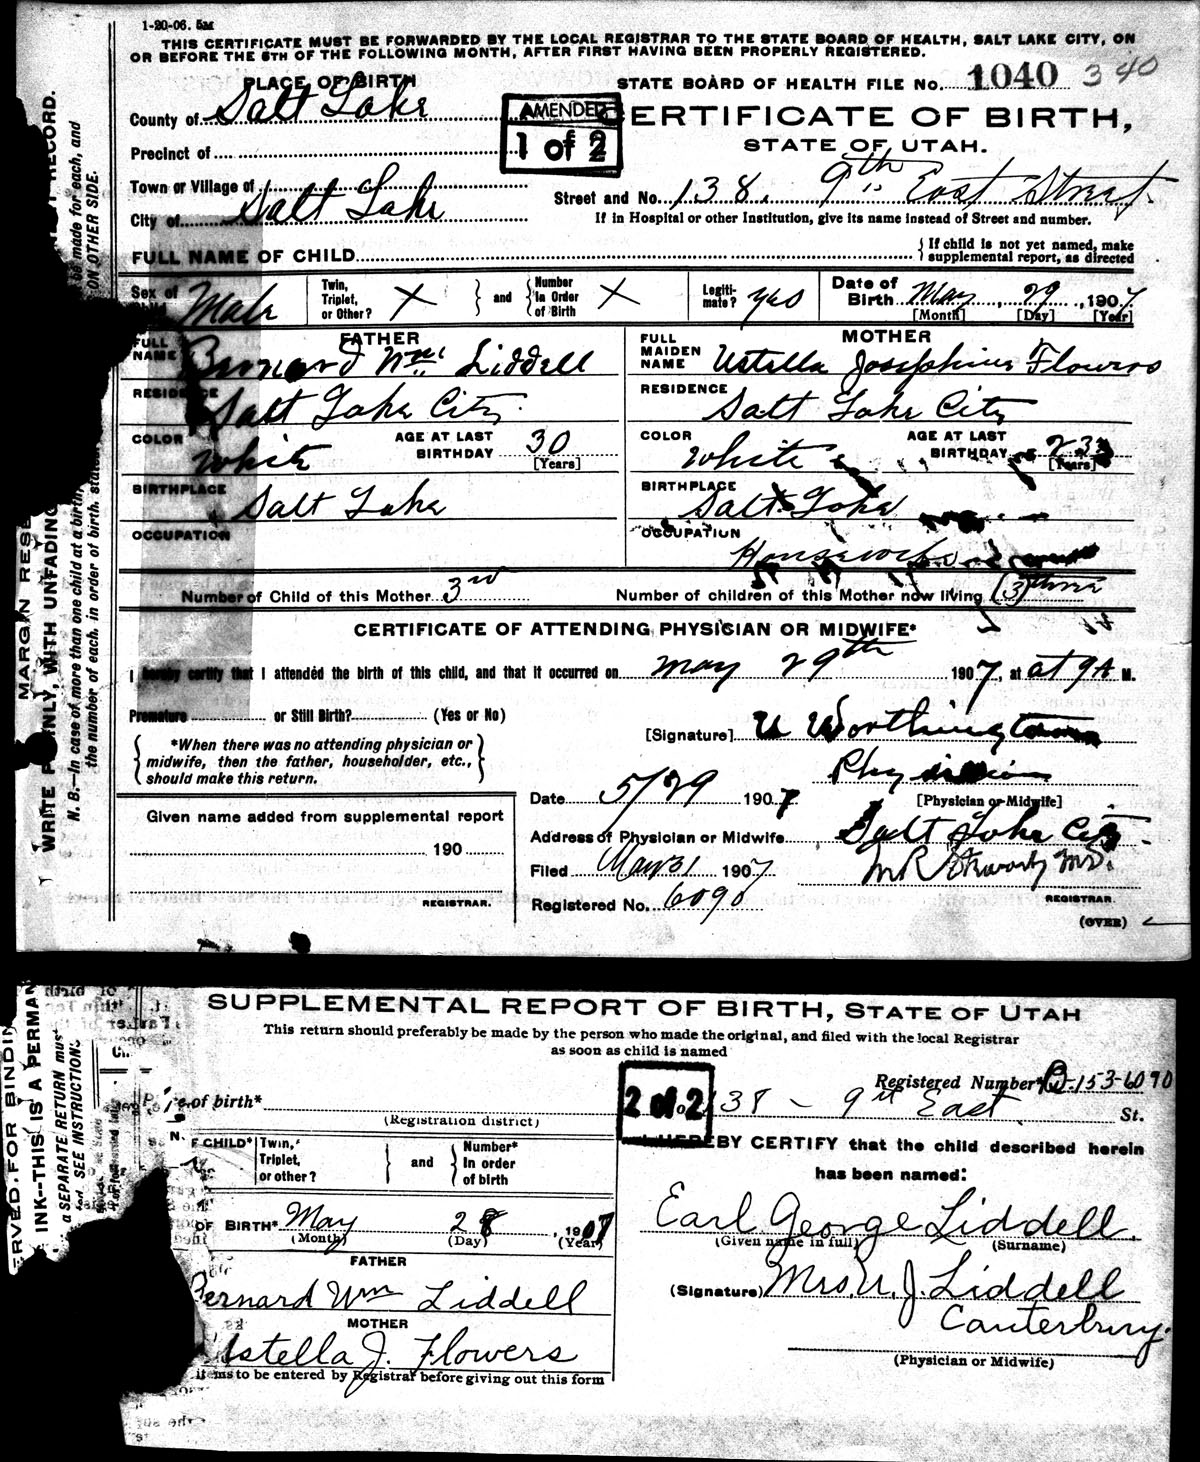 1-20-06. 5M
THIS CERTIFICATE MUST BE FORWARDED BY THE LOCAL REGISTRAR TO THE STATE BOARD OF HEALTH, SALT LAKE CITY, ON
OR BEFORE THE 5TH OF THE FOLLOWING MONTH, AFTER FIRST HAVING BEEN PROPERLY REGISTERED.
PLACE OF BIRTH
STATE BOARD OF HEALTH FILE No. 1040 340
County of Salt Lake
AMENDED
1 of 2
CERTIFICATE OF BIRTH,
STATE OF UTAH.
Precinct of
Town or Village of
Street and No. 138. 9th East Street
City of Salt Lake
If in Hospital or other Institution, give its name instead of Street and number.
FULL NAME OF CHILD
If child is not yet named, make
supplemental report, as directed
Sex of Child Male
Twin, Triplet, or Other? X and Number In Order of Birth X
Legiti-mate? yes
Date of Birth May 29, 1907
[Month] [Day] [Year]
FATHER
MOTHER
FULL NAME Bernard Wm Liddell
FULL MAIDEN NAME Ustella Josephine Flowers
RESIDENCE Salt Lake City
RESIDENCE Salt Lake City
COLOR White AGE AT LAST BIRTHDAY 30 [Years]
COLOR White AGE AT LAST BIRTHDAY 23 [Years]
BIRTHPLACE Salt Lake
BIRTHPLACE Salt Lake
OCCUPATION
OCCUPATION Housework
Number of Child of this Mother 3rd
Number of children of this Mother now living (3)
CERTIFICATE OF ATTENDING PHYSICIAN OR MIDWIFE*
I hereby certify that I attended the birth of this child, and that it occurred on May 29th 1907, at at 9 A M.
Premature or Still Birth? (Yes or No)
[Signature] U Worthington
*When there was no attending physician or
midwife, then the father, householder, etc.,
should make this return.
Physician
[Physician or Midwife]
Date 5/29 1907
Given name added from supplemental report
Address of Physician or Midwife Salt Lake City
190
Filed May 31 1907
M R Stewart M.D.
REGISTRAR.
Registered No. 6090
REGISTRAR.
(OVER)
MARGIN RESE
WRITE PLAINLY, WITH UNFADING
T RECORD.
N. B.—In case of more than one child at a birth,
be made for each, and
the number of each, in order of birth, stated
ON OTHER SIDE.
SUPPLEMENTAL REPORT OF BIRTH, STATE OF UTAH
This return should preferably be made by the person who made the original, and filed with the local Registrar
as soon as child is named
Registered Number* B-153-6090
Place of birth*
(Registration district)
2 of 2
No. 138 - 9th East St.
F CHILD* Twin, Triplet, or other? and Number* In order of birth
I HEREBY CERTIFY that the child described herein
has been named:
OF BIRTH* May 28, 1907
(Month) (Day) (Year)
Earl George Liddell
(Given name in full) (Surname)
FATHER
Bernard Wm Liddell
(Signature) Mrs. U. J. Liddell
Canterbury
MOTHER
Ustella J. Flowers
(Physician or Midwife)
items to be entered by Registrar before giving out this form
ERVED FOR BINDIN
INK--THIS IS A PERMAN
a SEPARATE RETURN mus
SEE INSTRUCTION